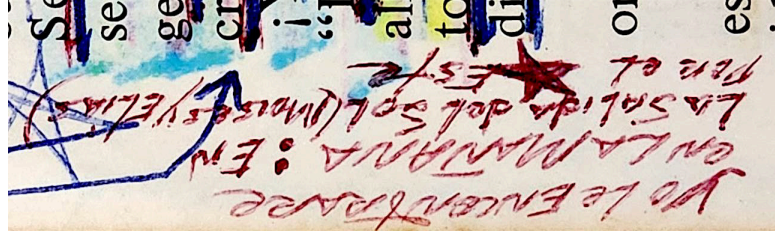 Se
se
ge
cr
al
to
di
or
es
YO Le ENCONTRARE
en LA MAÑANA : EN
La Salida del Sol (Moises y ELIAS)
Por el ESTE